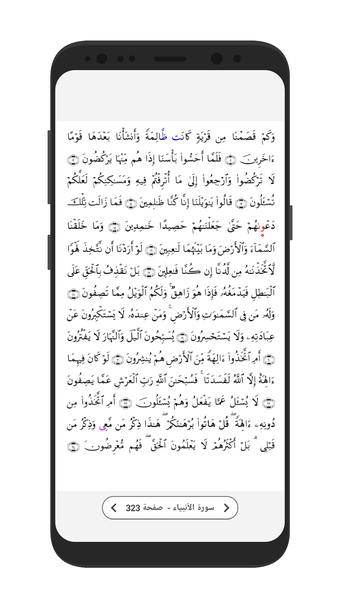 وَكَمْ قَصَمْنَا مِن قَرْيَةٍ كَانَت ظَّالِمَةً وَأَنشَأْنَا بَعْدَهَا قَوْمًا
ءَاخَرِينَ ۝ فَلَمَّا أَحَسُّوا۟ بَأْسَنَآ إِذَا هُم مِّنْهَا يَرْكُضُونَ ۝
لَا تَرْكُضُوا۟ وَٱرْجِعُوٓا۟ إِلَىٰ مَآ أُتْرِفْتُمْ فِيهِ وَمَسَـٰكِنِكُمْ لَعَلَّكُمْ
تُسْـَٔلُونَ ۝ قَالُوا۟ يَـٰوَيْلَنَآ إِنَّا كُنَّا ظَـٰلِمِينَ ۝ فَمَا زَالَت تِّلْكَ
دَعْوَىٰهُمْ حَتَّىٰ جَعَلْنَـٰهُمْ حَصِيدًا خَـٰمِدِينَ ۝ وَمَا خَلَقْنَا
ٱلسَّمَآءَ وَٱلْأَرْضَ وَمَا بَيْنَهُمَا لَـٰعِبِينَ ۝ لَوْ أَرَدْنَآ أَن نَّتَّخِذَ لَهْوًا
لَّٱتَّخَذْنَـٰهُ مِن لَّدُنَّآ إِن كُنَّا فَـٰعِلِينَ ۝ بَلْ نَقْذِفُ بِٱلْحَقِّ عَلَى
ٱلْبَـٰطِلِ فَيَدْمَغُهُۥ فَإِذَا هُوَ زَاهِقٌ ۚ وَلَكُمُ ٱلْوَيْلُ مِمَّا تَصِفُونَ ۝
وَلَهُۥ مَن فِى ٱلسَّمَـٰوَٰتِ وَٱلْأَرْضِ ۚ وَمَنْ عِندَهُۥ لَا يَسْتَكْبِرُونَ عَنْ
عِبَادَتِهِۦ وَلَا يَسْتَحْسِرُونَ ۝ يُسَبِّحُونَ ٱلَّيْلَ وَٱلنَّهَارَ لَا يَفْتُرُونَ
۝ أَمِ ٱتَّخَذُوٓا۟ ءَالِهَةً مِّنَ ٱلْأَرْضِ هُمْ يُنشِرُونَ ۝ لَوْ كَانَ فِيهِمَآ
ءَالِهَةٌ إِلَّا ٱللَّهُ لَفَسَدَتَا ۚ فَسُبْحَـٰنَ ٱللَّهِ رَبِّ ٱلْعَرْشِ عَمَّا يَصِفُونَ
۝ لَا يُسْـَٔلُ عَمَّا يَفْعَلُ وَهُمْ يُسْـَٔلُونَ ۝ أَمِ ٱتَّخَذُوا۟ مِن
دُونِهِۦٓ ءَالِهَةً ۖ قُلْ هَاتُوا۟ بُرْهَـٰنَكُمْ ۖ هَـٰذَا ذِكْرُ مَن مَّعِىَ وَذِكْرُ مَن
قَبْلِى ۗ بَلْ أَكْثَرُهُمْ لَا يَعْلَمُونَ ٱلْحَقَّ ۖ فَهُم مُّعْرِضُونَ ۝
سورة الأنبياء - صفحة 323